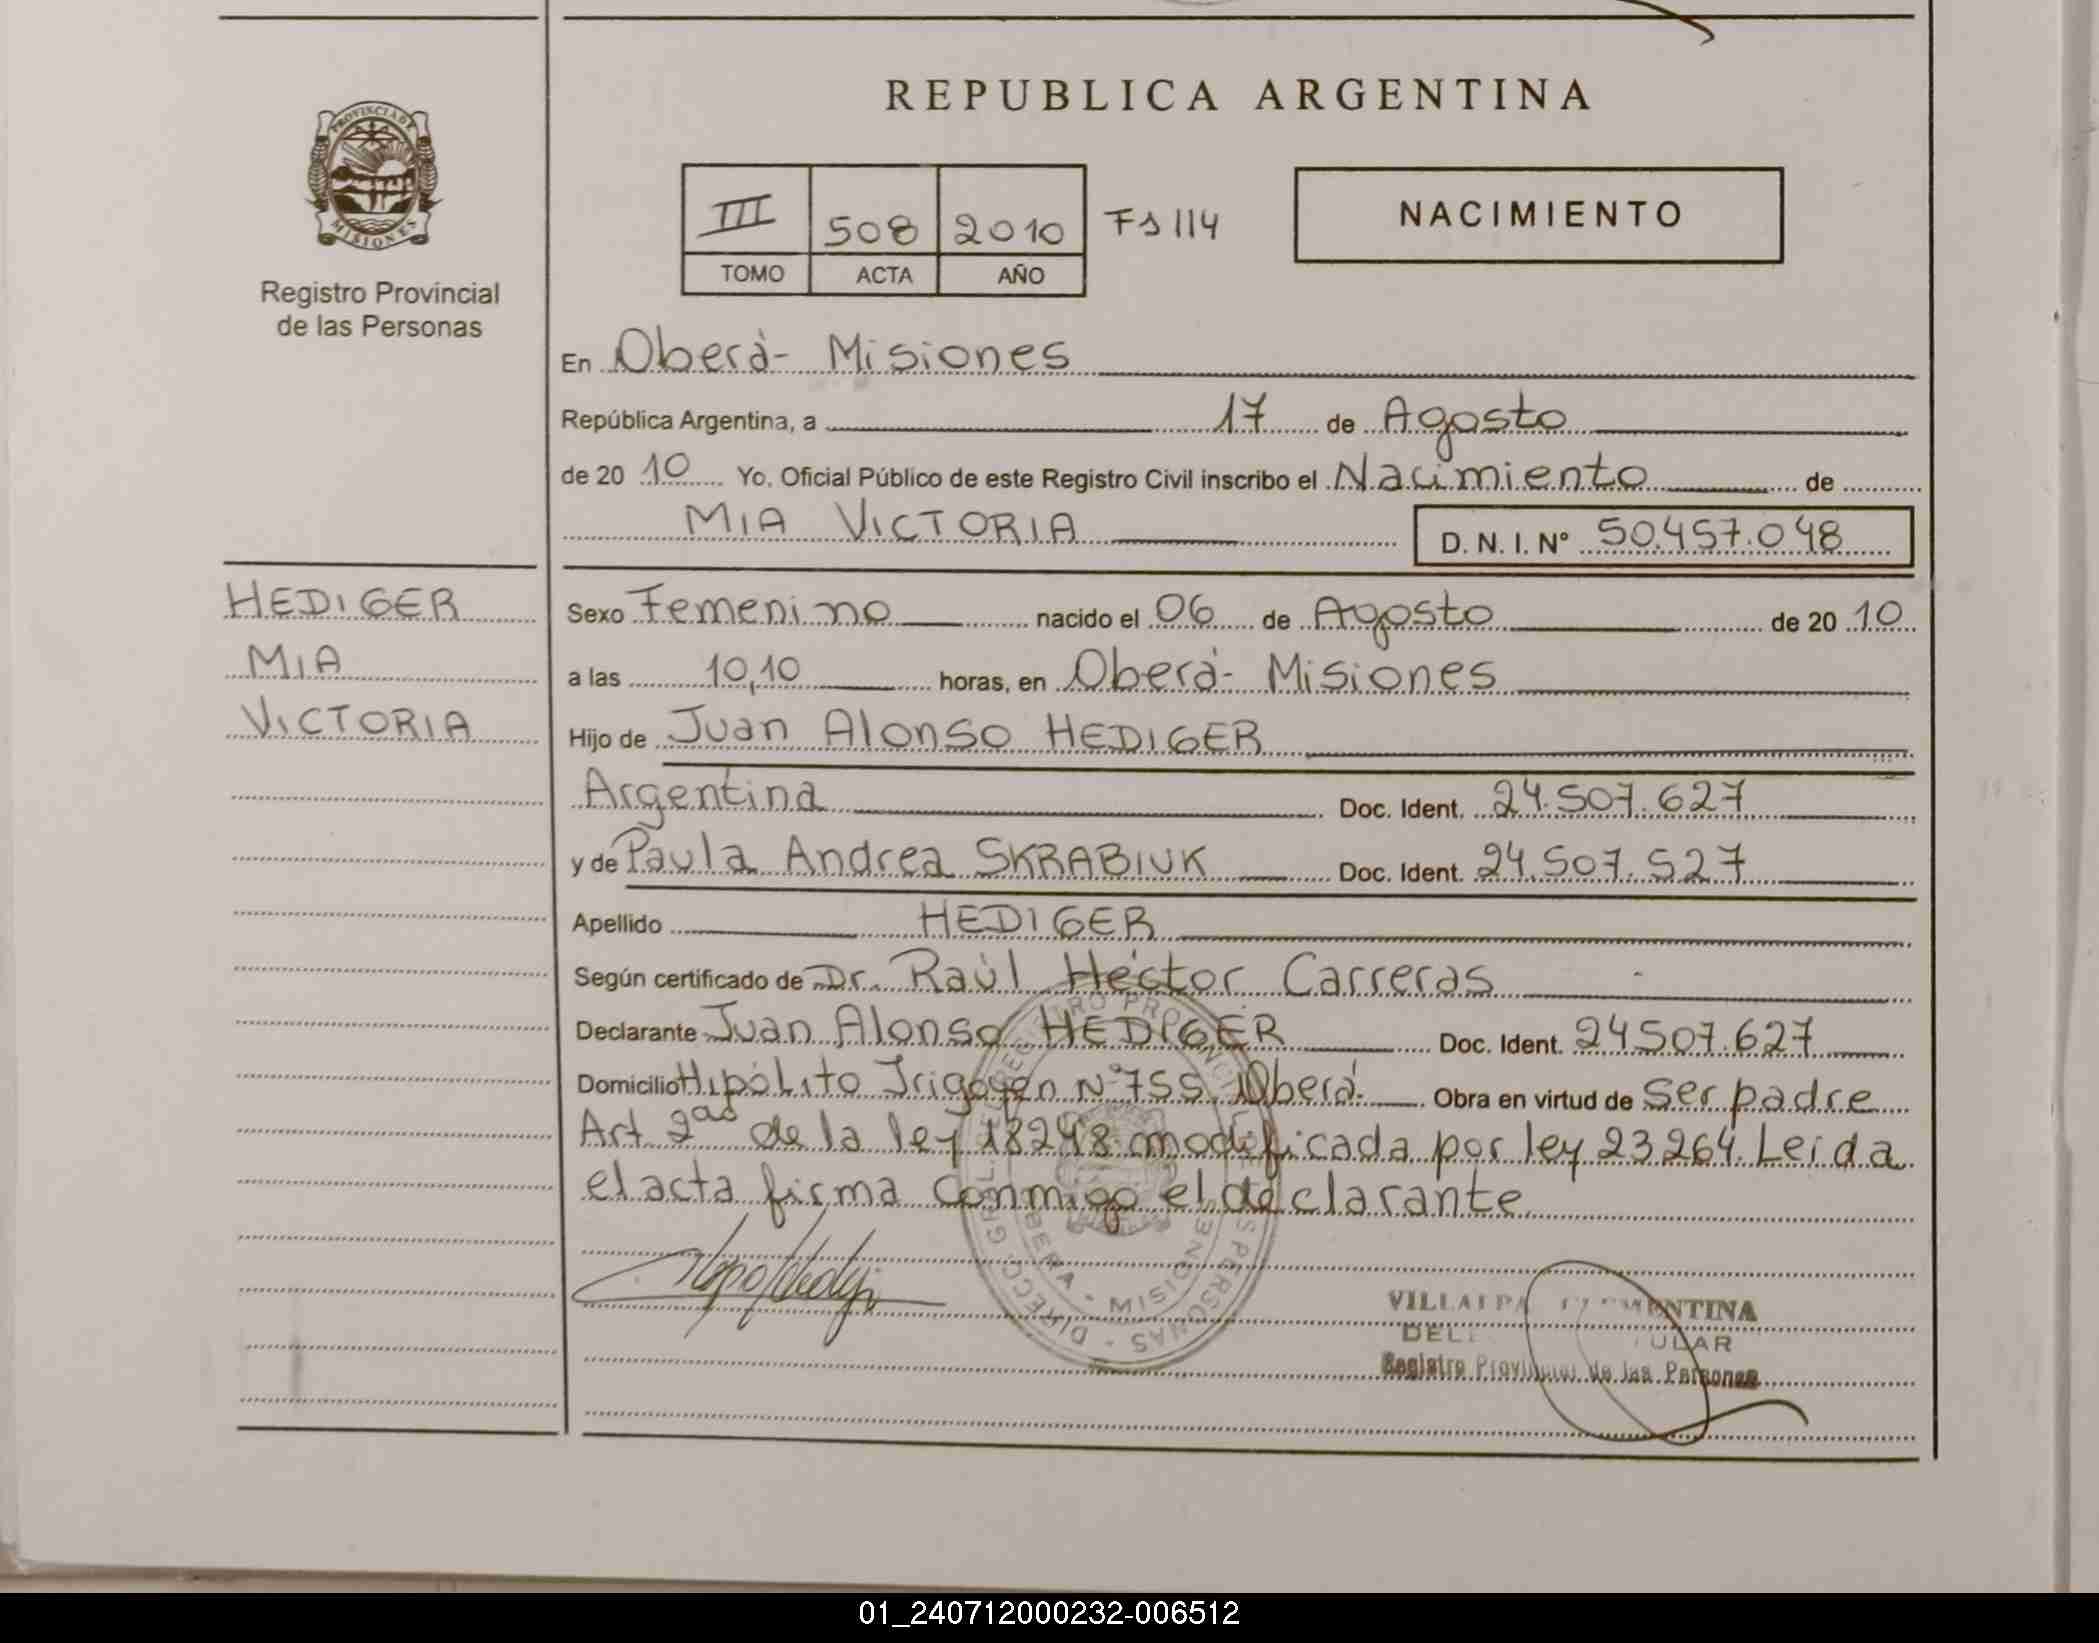 REPUBLICA ARGENTINA
PROVINCIA DE
MISIONES
Registro Provincial
de las Personas
III 508 2010 Fs 114
TOMO ACTA AÑO
NACIMIENTO
En Oberà- Misiones
República Argentina, a 17 de Agosto
de 20 10 Yo, Oficial Público de este Registro Civil inscribo el Nacimiento de
MIA VICTORIA D. N. I. Nº 50.457.048
HEDIGER
MIA
VICTORIA
Sexo Femenino nacido el 06 de Agosto de 20 10
a las 10,10 horas, en Oberà- Misiones
Hijo de Juan Alonso HEDIGER
Argentina Doc. Ident. 24.507.627
y de Paula Andrea SKRABIUK Doc. Ident. 24.507.527
Apellido HEDIGER
Según certificado de Dr. Raúl Héctor Carreras
Declarante Juan Alonso HEDIGER Doc. Ident. 24507.627
Domicilio Hipólito Irigoyen Nº 755 Oberá- Obra en virtud de ser padre
Art 2ªº de la ley 18248 modificada por ley 23264. Leida
el acta firma conmigo el declarante
DIRECC. GRAL. DEL REGISTRO PROVINCIAL DE LAS PERSONAS
OBERA - MISIONES
CLEMENTINA
Registro Provincial de las Personas
01_240712000232-006512